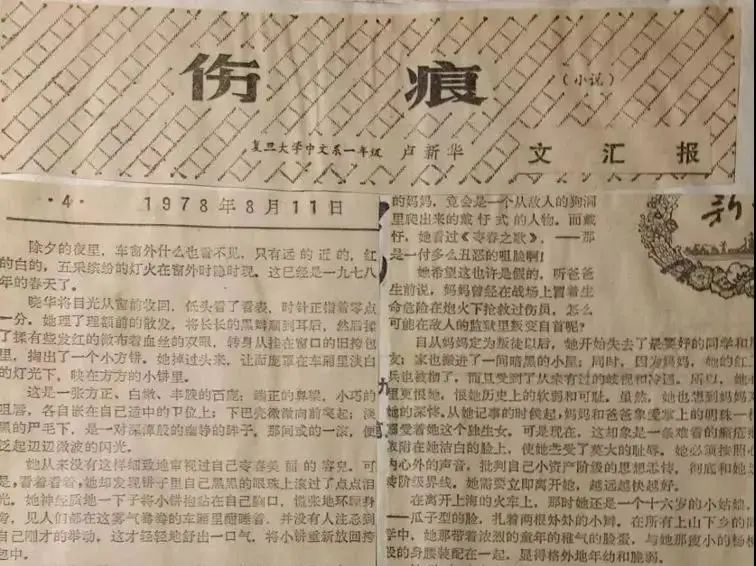 伤痕
(小说)
复旦大学中文系一年级 卢新华
文汇报
·4· 1978年8月11日
除夕的夜里，车窗外什么也看不见，只有远的近的，红
的白的，五采缤纷的灯火在窗外时隐时现。这已经是一九七八
年的春天了。
晓华将目光从窗前收回，低头看了看表，时针正指着零点
一分。她理了理额前的散发，将长长的黑辫顺到耳后，然后揉
了揉有些发红的微布着血丝的双眼，转身从挂在窗口的旧挎包
里，掏出了一个小方镜。她掉过头来，让面庞罩在车厢里淡白
的灯光下，映在方方的小镜里。
这是一张方正、白嫩、丰腴的面庞：端正的鼻梁，小巧的
嘴唇，各自嵌在自己适中的卫位上；下巴壳微微向前突起；淡
黑的眉毛下，是一对深潭般的幽静的眸子，那间或的一滚，便
泛起边边微波的闪光。
她从来没有这样细致地审视过自己青春美丽的容皃。可
是，看着看着，她却发现镜子里自己黑黑的眼珠上滚过了点点泪
光。她神经质地一下子将小镜抱贴在自己胸口，慌张地环顾身
旁，见人们都在这雾气腾腾的车厢里酣睡着，并没有人注意到
自己刚才的举动，这才轻轻地舒出一口气，将小镜重新放回挎
包中。
的妈妈，竟会是一个从敌人的狗洞
里爬出来的戴忓式的人物。而戴
忓，她看过《青春之歌》，——那
是一付多么丑恶的咀脸啊！
她希望这也许是假的，听爸爸
生前说，妈妈曾经在战场上冒着生
命危险在炮火下抢救过伤员，怎么
可能在敌人的监狱里叛变自首呢？
自从妈妈定为叛徒以后，她开始失去了最要好的同学和朋
友；家也搬进了一间暗黑的小屋；同时，因为妈妈，她的红卫
兵也被彻了，而且受到了从未有过的歧视和冷遇。所以，她
更恨她，恨她历史上的软弱和可耻。虽然，她也想到妈妈对
她的深情。从她记事的时候起，妈妈和爸爸象爱掌上的明珠一样
爱着她这个独生女。可是现在，这却象是一条难看的癞疮疤
依附在她洁白的脸上，使她蒙受了莫大的耻辱。她必须按照心
内心外的声音，批判自己小资产阶级的思想恋情，彻底和她划
清阶级界线。她需要立即离开她，越远越快越好。
在离开上海的火车上，那时她还是一个十六岁的小姑娘，
——瓜子型的脸，扎着两根短短的小辫。在所有上山下乡的同
学中，她那带着浓烈的童年的稚气的脸蛋，与她那瘦小的杨柳
般的身腰装配在一起，显得格外地年幼和脆弱。
新